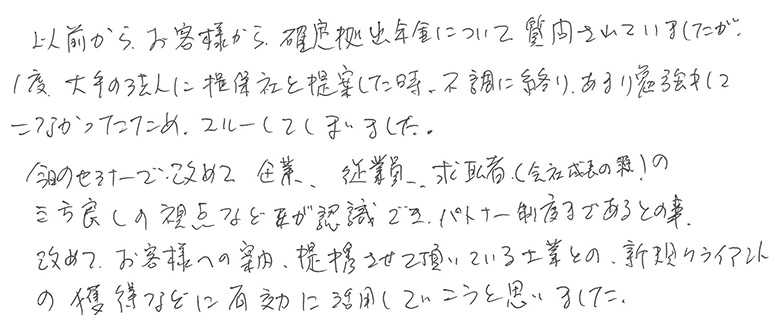 以前から、お客様から、確定拠出年金について質問されていましたが、
1度、大手の法人に損保社と提案した時、不調に終り、あまり勉強もして
こなかったため、スルーしてしまいました。
今回のセミナーで、改めて企業、従業員、求職者(会社成長の為)の
三方良しの視点など私が認識でき、パートナー制度まであるとの事、
改めて、お客様への案内、提携させて頂いている士業との、新規クライアント
の獲得などに有効に活用していこうと思いました。